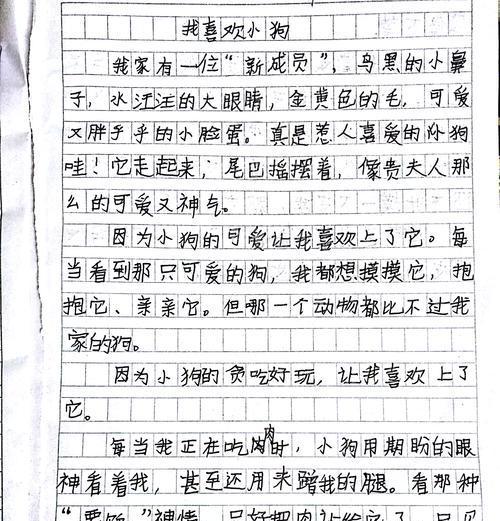 我喜欢小狗
我家有一位“新成员”，乌黑的小鼻
子，水汪汪的大眼睛，金黄色的毛，可爱
又胖乎乎的小脸蛋。真是惹人喜爱的小狗
哇！它走起来，尾巴摇摆着，像贵夫人那
么的可爱又神气。
因为小狗的可爱让我喜欢上了它。每
当看到那只可爱的狗，我都想摸摸它，抱
抱它、亲亲它。但哪一个动物都比不过我
家的狗。
因为小狗的贪吃好玩，让我喜欢上了
它。
每当我正在吃肉时，小狗用期盼的眼
神看着我，甚至还用来蹭我的腿。看那种
“要饭”神情，只好把肉让给它了，只见